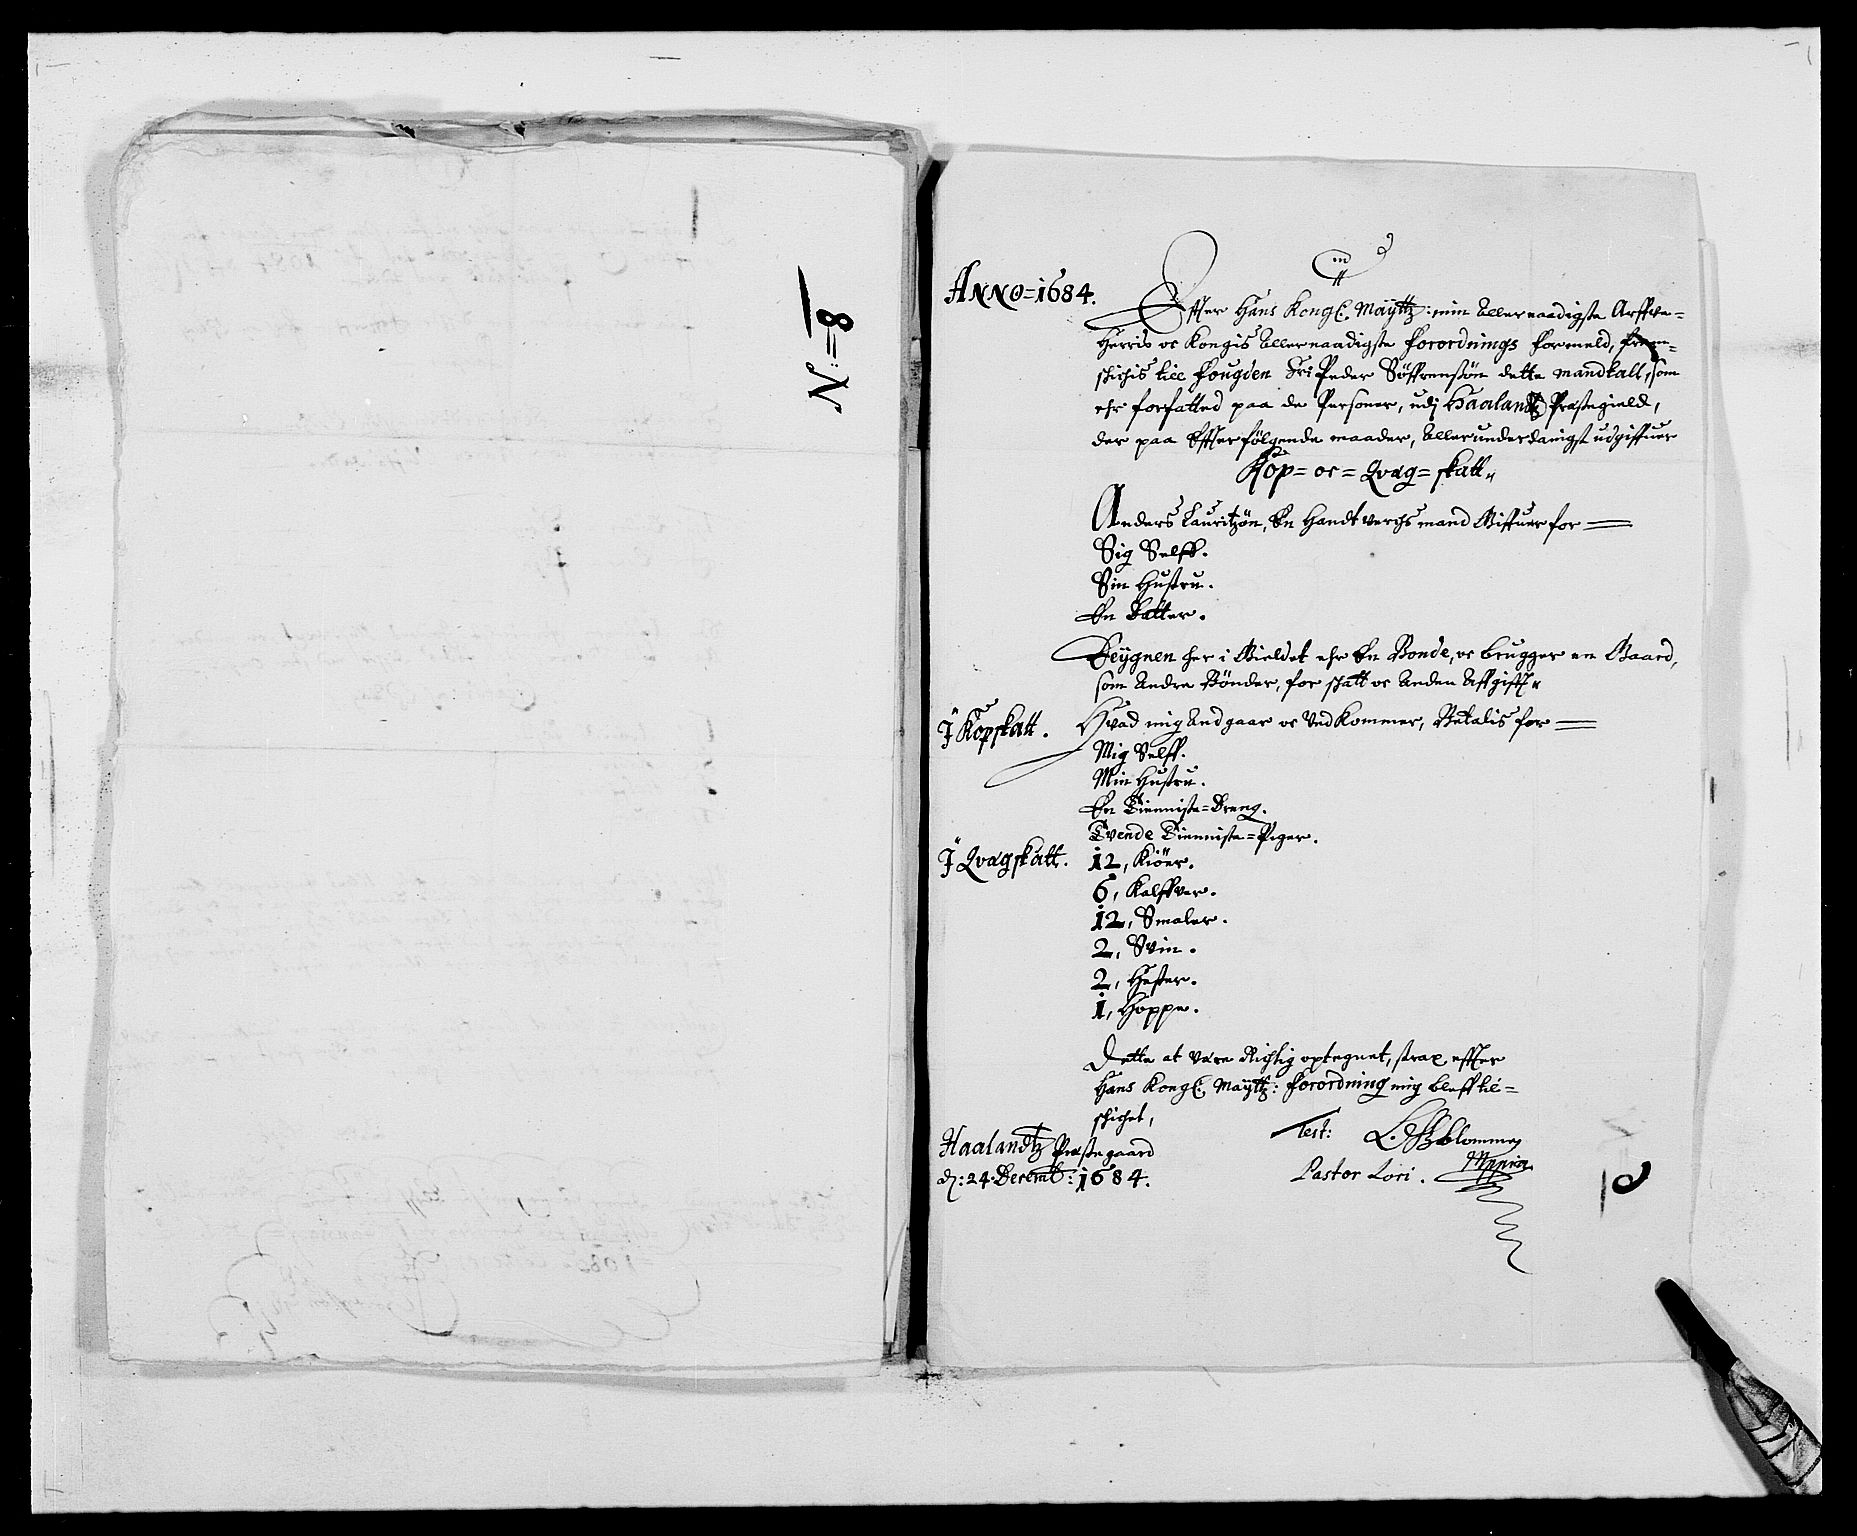 N:=8
ANNO=1684.
Effter Hans Kongl: Mayttz: min Allernaadigste Arffve=
Herris oc Kongis Allernaadigste forordnings formeld, frem=
schichis till fougden Sr: Peder Söffrensön dette mandtall, som
ehr forfatted paa de Personer, udj Haalandtz Præstegield,
der paa Effterfölgende maader, Allerunderdanigst udgiffuer
Kop= oc= Qvæg= skatt.
Anders Lauritzön, En Handtverchsmand Giffuer for
Sig Selff.
Sin Hustru.
En Datter.
Deygnen her i Gieldet ehr En Bonde, oc brugger en Gaard,
som Andre Bönder, for schatt oc Anden Affgifft.
J Kopskatt.
Hvad mig Andgaar oc Ved Kommer, Betalis for
Mig Selff.
Min Hustru.
En Tienniste=Dreng.
Tvende Tienniste=Piger.
J Qvægskatt.
12, Kiöer.
6, Kalffver.
12, Smaler.
2, Svin.
2, Hester.
1, Hoppe.
Dette at være Richtig optegnet, strax effter
Hans Kongl: Mayttz: forordning mig bleff til=
schichet,
Haalandtz Præstegaard
d: 24. Decemb: 1684.
Test:
Blomme
Mppria
Pastor Loci.